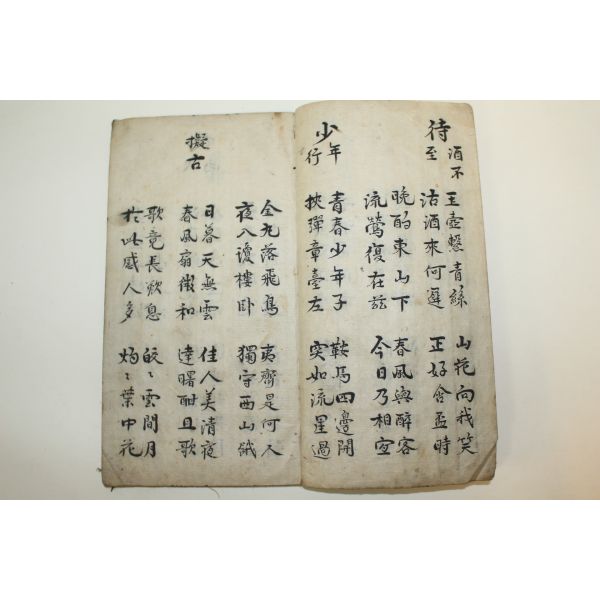 待酒不至
玉壺繫青絲
沽酒來何遲
山花向我笑
正好含盃時
晩酌東山下
流鶯復在玆
春風與醉客
今日乃相宜
少年行
青春少年子
挾彈章臺左
鞍馬四邊開
突如流星過
金丸落飛鳥
夜入瓊樓臥
夷齊是何人
獨守西山餓
擬古
日暮天無雲
春風扇微和
佳人美清夜
達曙酣且歌
歌竟長歎息
於此感人多
皎〻雲間月
灼〻葉中花